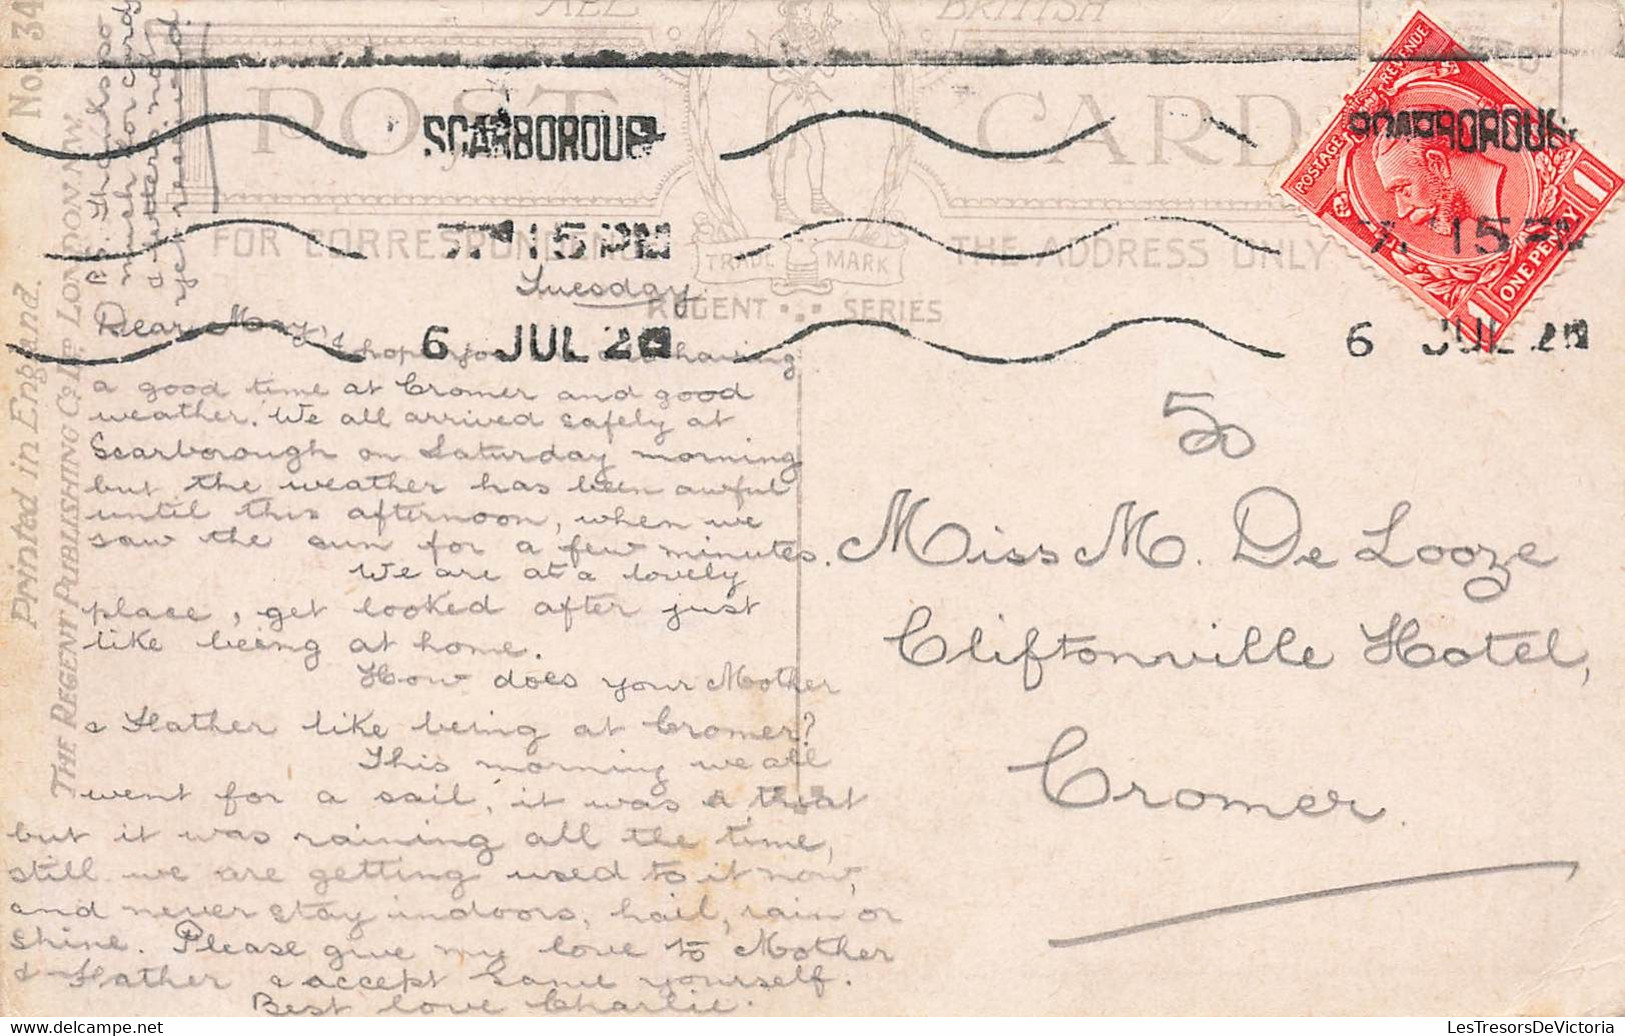 ALL BRITISH
POST CARD
FOR CORRESPONDENCE
THE ADDRESS ONLY
TRADE MARK
REGENT SERIES
No 34
Printed in England.
THE REGENT PUBLISHING Co LTD. LONDON N.W.
SCARBOROUGH
7. 15 PM
6 JUL 20
SCARBOROUGH
7. 15 PM
6 JUL 20
POSTAGE REVENUE
1 ONE PENNY 1
P.S. Thanks so
much for card
& letters not
yet received.
Tuesday.
Dear May,
I hope you are having
a good time at Cromer and good
weather. We all arrived safely at
Scarborough on Saturday morning
but the weather has been awful
until this afternoon, when we
saw the sun for a few minutes.
We are at a lovely
place, get looked after just
like being at home.
How does your Mother
& Father like being at Cromer?
This morning we all
went for a sail, it was a
but it was raining all the time,
still we are getting used to it now,
and never stay indoors, hail, rain or
shine. Please give my love to Mother
& Father & accept same yourself.
Best love Charlie.
50
Miss M. De Looze
Cliftonville Hotel,
Cromer.
LesTresorsDeVictoria
www.delcampe.net